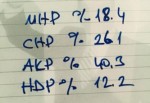 MHP % 18.4
CHP % 26.1
AKP % 40.3
HDP % 12.2